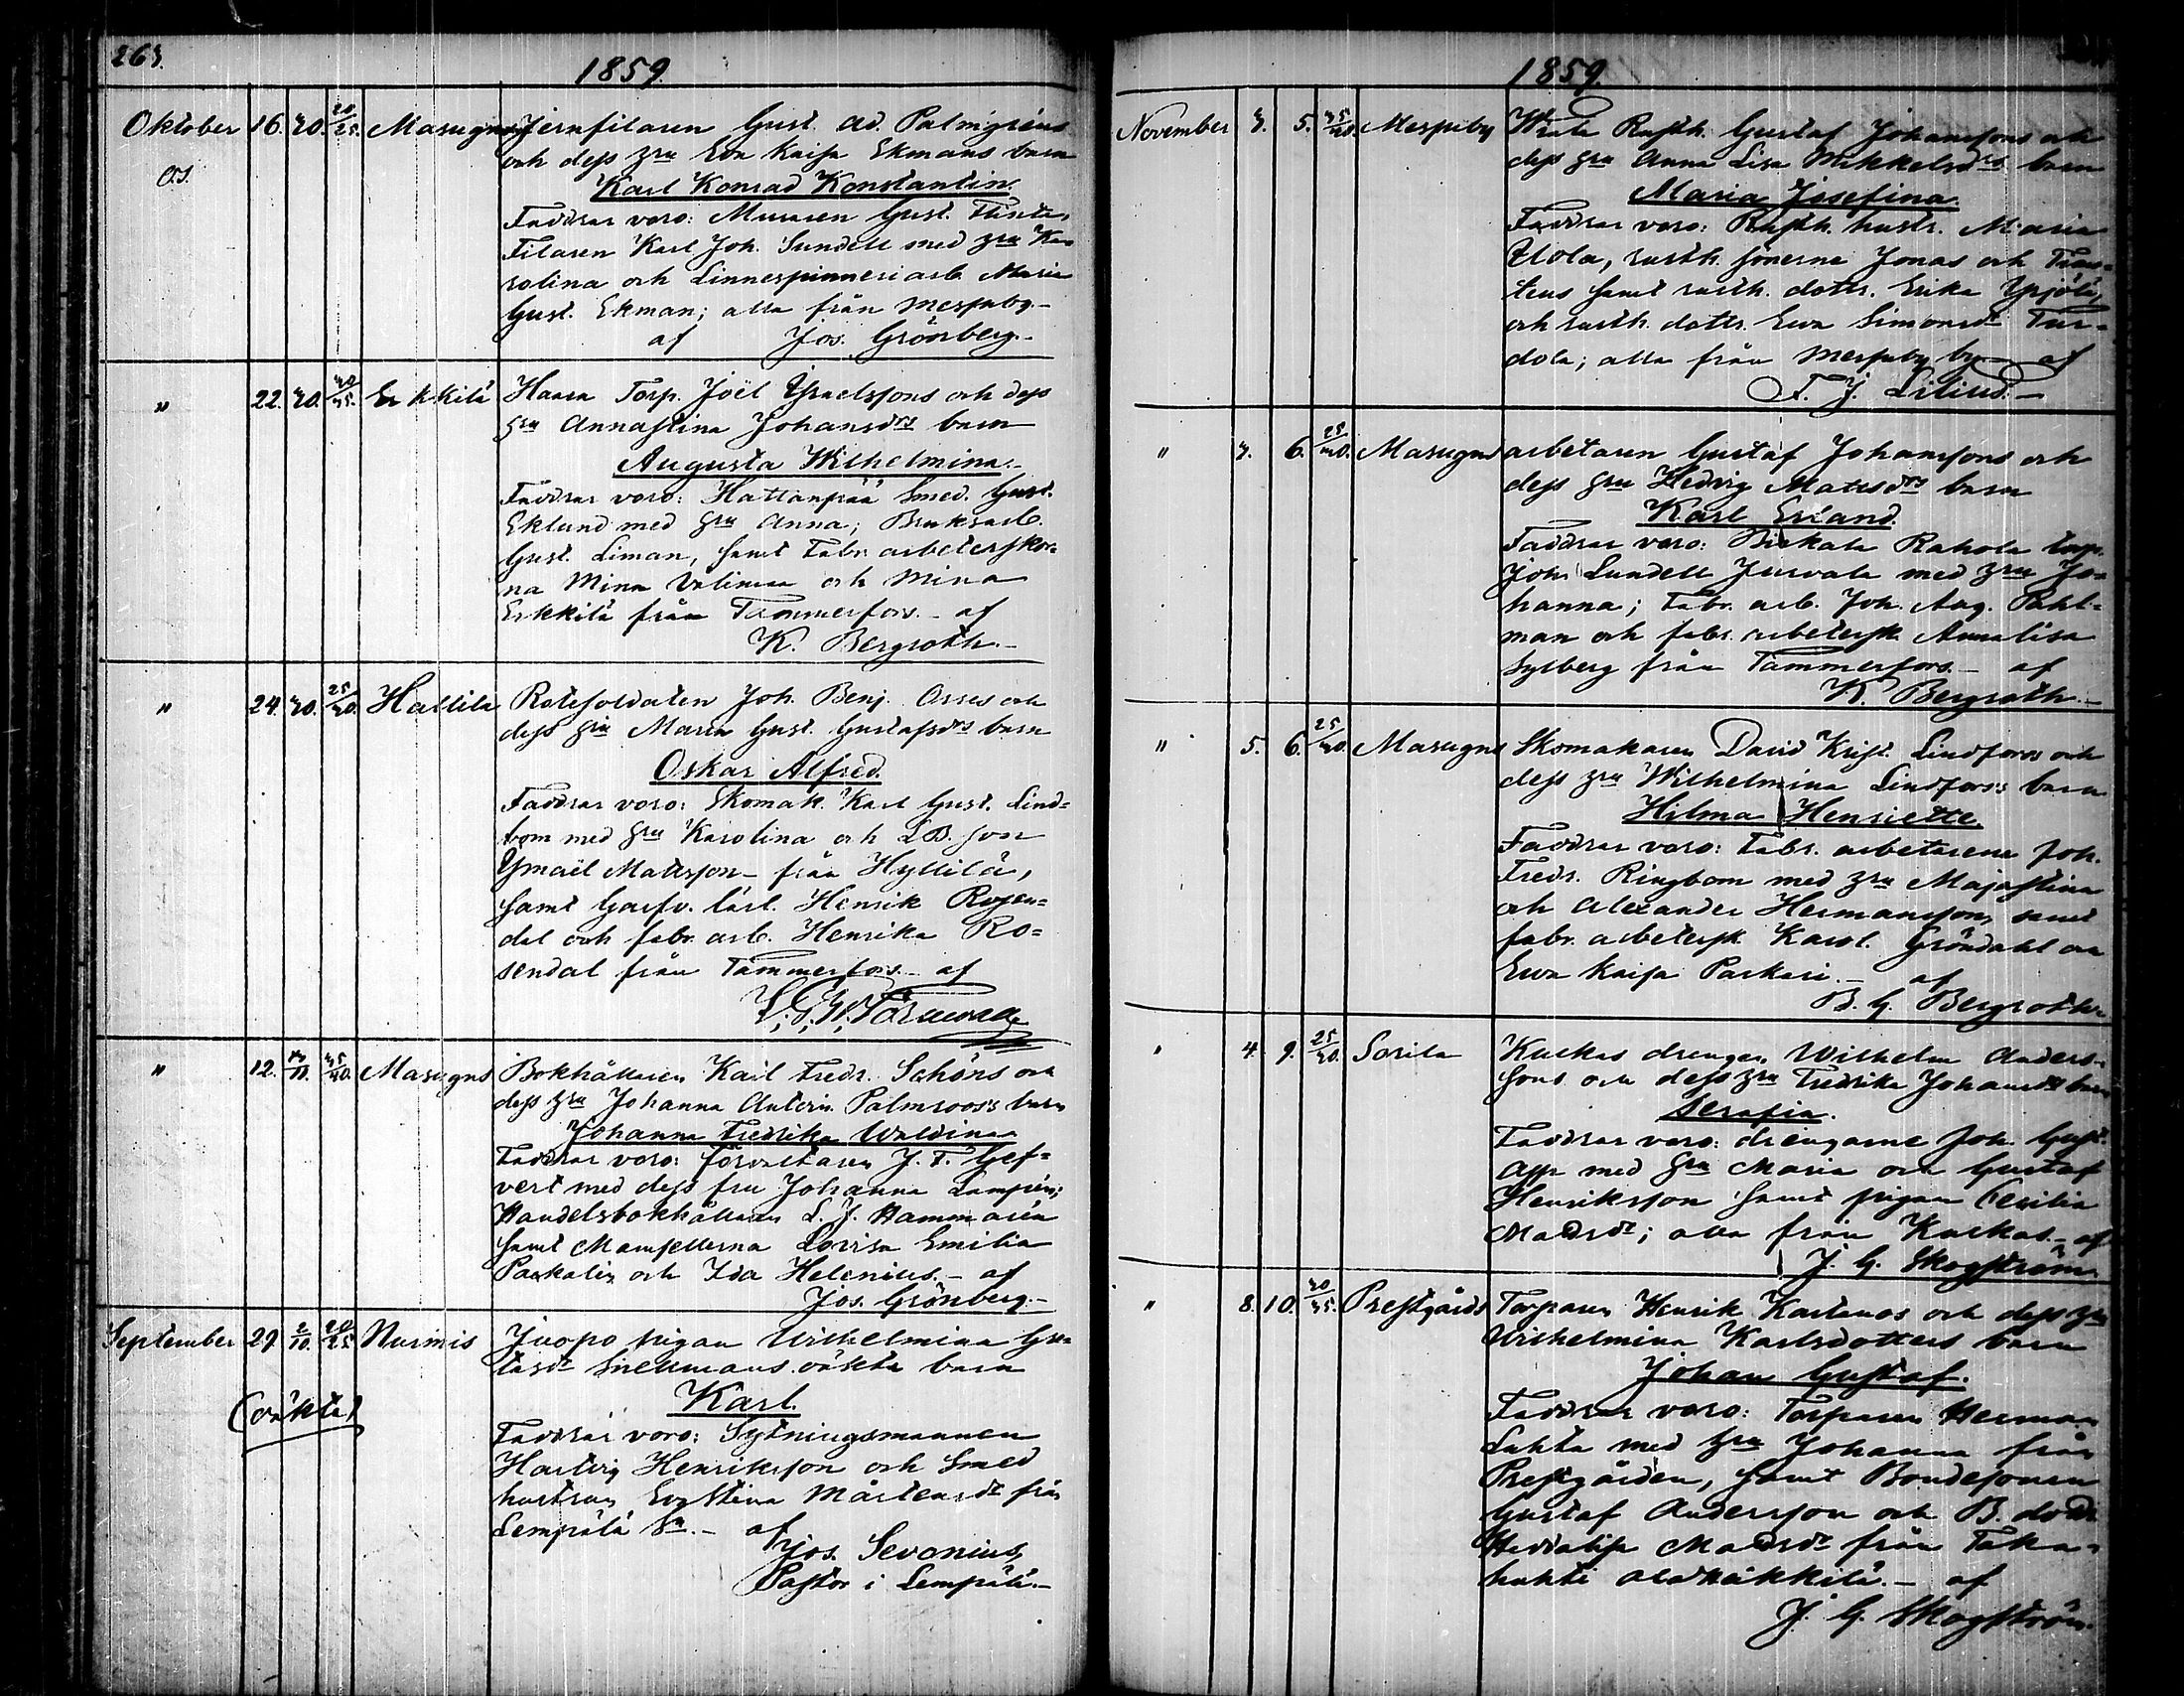 263.
1859.
Oktober 16. 30. 20/25. Masugns Jernfilaren Gust. Ad. Palmgréns
och dess hru Eva Kaisa Ekmans barn
Karl Konrad Konstantin.
Faddrar voro: Muraren Gust. Flinta,
Filaren Karl Joh. Sundell med hru Ka-
rolina och Linnespinneriarb. Maria
Gust. Ekman; alla från Messuby.-
af Jos. Grönberg.-
" 22. 30. Erkkilä Haara Torp. Joël Ysraelssons och dess
hru Annastina Johansdrs barn
Augusta Wilhelmina.-
Faddrar voro: Hattanpää Smed. Gust.
Eklund med hru Anna; Bruksarb.
Gust. Liman, samt Fabr. arbeterskor-
na Mina Välimaa och Mina
Erkkilä från Tammerfors.- af
K. Bergroth.-
" 24. 30. 25/30. Hallila Rotesoldaten Joh. Benj. Orres och
dess hru Maria Gust. Gustafsdrs barn
Oskar Alfred.
Faddrar voro: Skomak. Karl Gust. Lind-
bom med hru Karolina och LB. son
Ysmaël Matsson från Hyllilä,
samt Garfv. lärl. Henrik Rosen-
dal och fabr. arb. Henrika Ro-
sendal från Tammerfors.- af
" 12. Masugns Bokhållaren Karl Fredr. Schöns och
dess hru Johanna Palmroos's barn
Johanna Fredrika Waldina
Faddrar voro: förvaltaren J. F. Gef-
vert med dess fru Johanna Lampén;
Handelsbokhållaren L. J. Hammarén
samt Mamsellerna Lovisa Emilia
och Ida Helenius.- af
Jos. Grönberg.-
September 29. 2/10. 20/25. Nurmis Juopo pigan Wilhelmina Gus-
tafsdr Snellmans oäkta barn
(oäkta)
Karl.
Faddrar voro: Sytningsmannen
Hartvig Henriksson och Smed
hustrun Evastina Mårtensdr från
Lempälä Sn.- af
Jos. Sevonius,
Pastor i Lempälä.-
1859.
November 3. 5. Messuby Rusth. Gustaf Johanssons och
dess hru Anna Lisa Mikkelsdrs barn
Maria Josefina.
Faddrar voro: Rusth. hustr. Maria
Uola, rusth. sönerna Jonas och
samt rusth. dottr. Erika
och rusth. dottr. Eva Simonsdr Tur-
dola; alla från Messuby by.- af
F. J. Lilius.-
" 3. 6. Masugns arbetaren Gustaf Johanssons och
dess hru Hedvig Matsdrs barn
Karl Erland.
Faddrar voro: Birkala Rahola torp.
Joh. Lundell med hru Jo-
hanna; Fabr. arb. Joh. Aug. Pahl-
man och fabr. arbetersk. Annalisa
Sylberg från Tammerfors.- af
K. Bergroth.-
" 5. 6. 25/30. Masugns Skomakaren David Krist. Lindfors och
dess hru Wilhelmina Lindfors's barn
Hilma Henriette
Faddrar voro: Fabr. arbetarene Joh.
Fredr. Ringbom med hru Majastina
och Alexander Hermansson, samt
fabr. arbetersk. Karol. Gröndahl och
Eva Kaisa Parkari.- af
B. G. Bergroth.
" 4. 9. 25/30. Sorila Kulkas drengen Wilhelm Anders-
sons och dess hru Fredrika Johansdrs barn
Serafia.
Faddrar voro: drengarne Joh. Gust.
med hru Maria och Gustaf
Henriksson samt pigan Cecilia
Madsdr; alla från Kulkas.- af
J. G. Skogström.
" 8. 10. Prestgårds Torparen Henrik Kartanos och dess hru
Wilhelmina Karlsdotters barn
Johan Gustaf.
Faddrar voro: Torparen Herman
Lahta med hru Johanna från
Prestgården, samt Bondesonen
Gustaf Andersson och B. dottr.
Heddalisa Madsdr från Taka-
huhti .- af
J. G. Skogström.